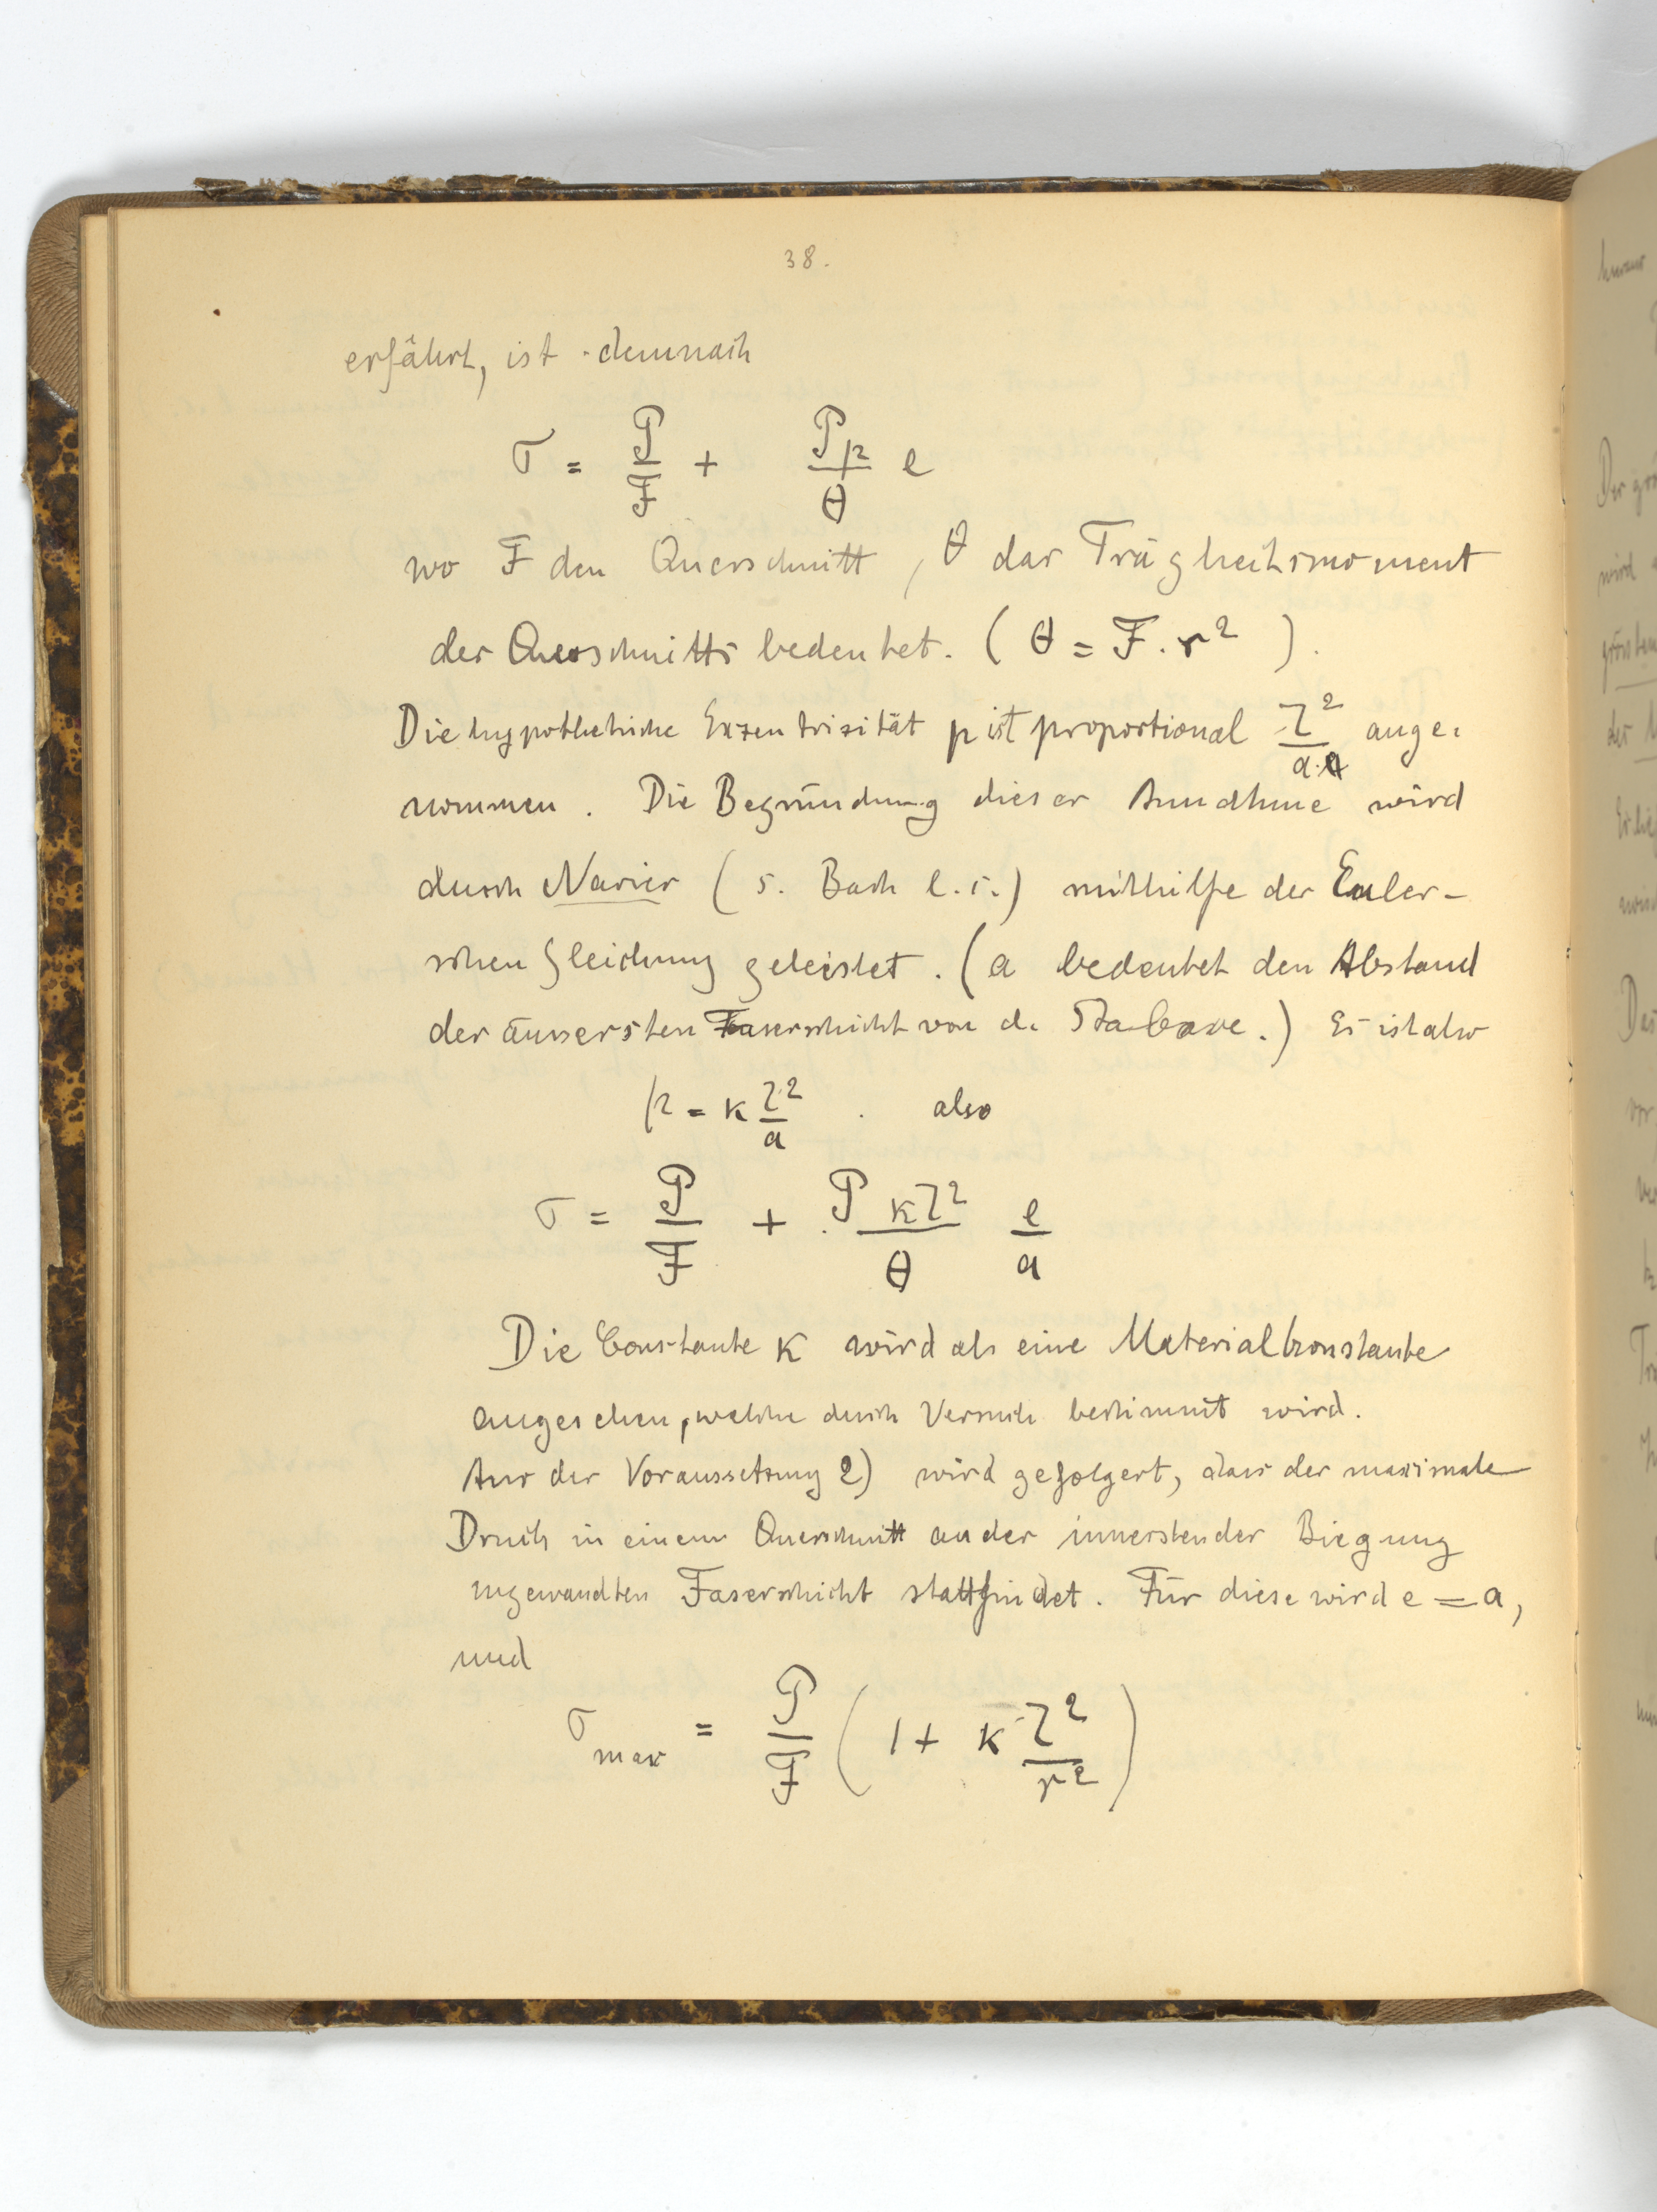 38.
erfährt, ist demnach
σ = P/F + Pp/θ e
wo F den Querschnitt, θ das Trägheitsmoment
des Querschnitts bedeutet. (θ = F. r²).
Die hypothetische Exzentrizität p ist proportional l²/a ange-
nommen. Die Begründung dieser Annahme wird
durch Navier (s. Bach l.c.) mithilfe der Euler-
schen Gleichung geleistet. (a bedeutet den Abstand
der äussersten Faserschicht von d. Stabaxe.) Es ist also
p = κ l²/a . also
σ = P/F + P κl²/θ e/a
Die Constante κ wird als eine Materialkonstante
angesehen, welche durch Versuch bestimmt wird.
Aus der Voraussetzung 2) wird gefolgert, dass der maximale
Druck in einem Querschnitt an der innersten der Biegung
zugewandten Faserschicht stattfindet. Für diese wird e = a,
und
σ max = P/F (1 + κ l²/r²)